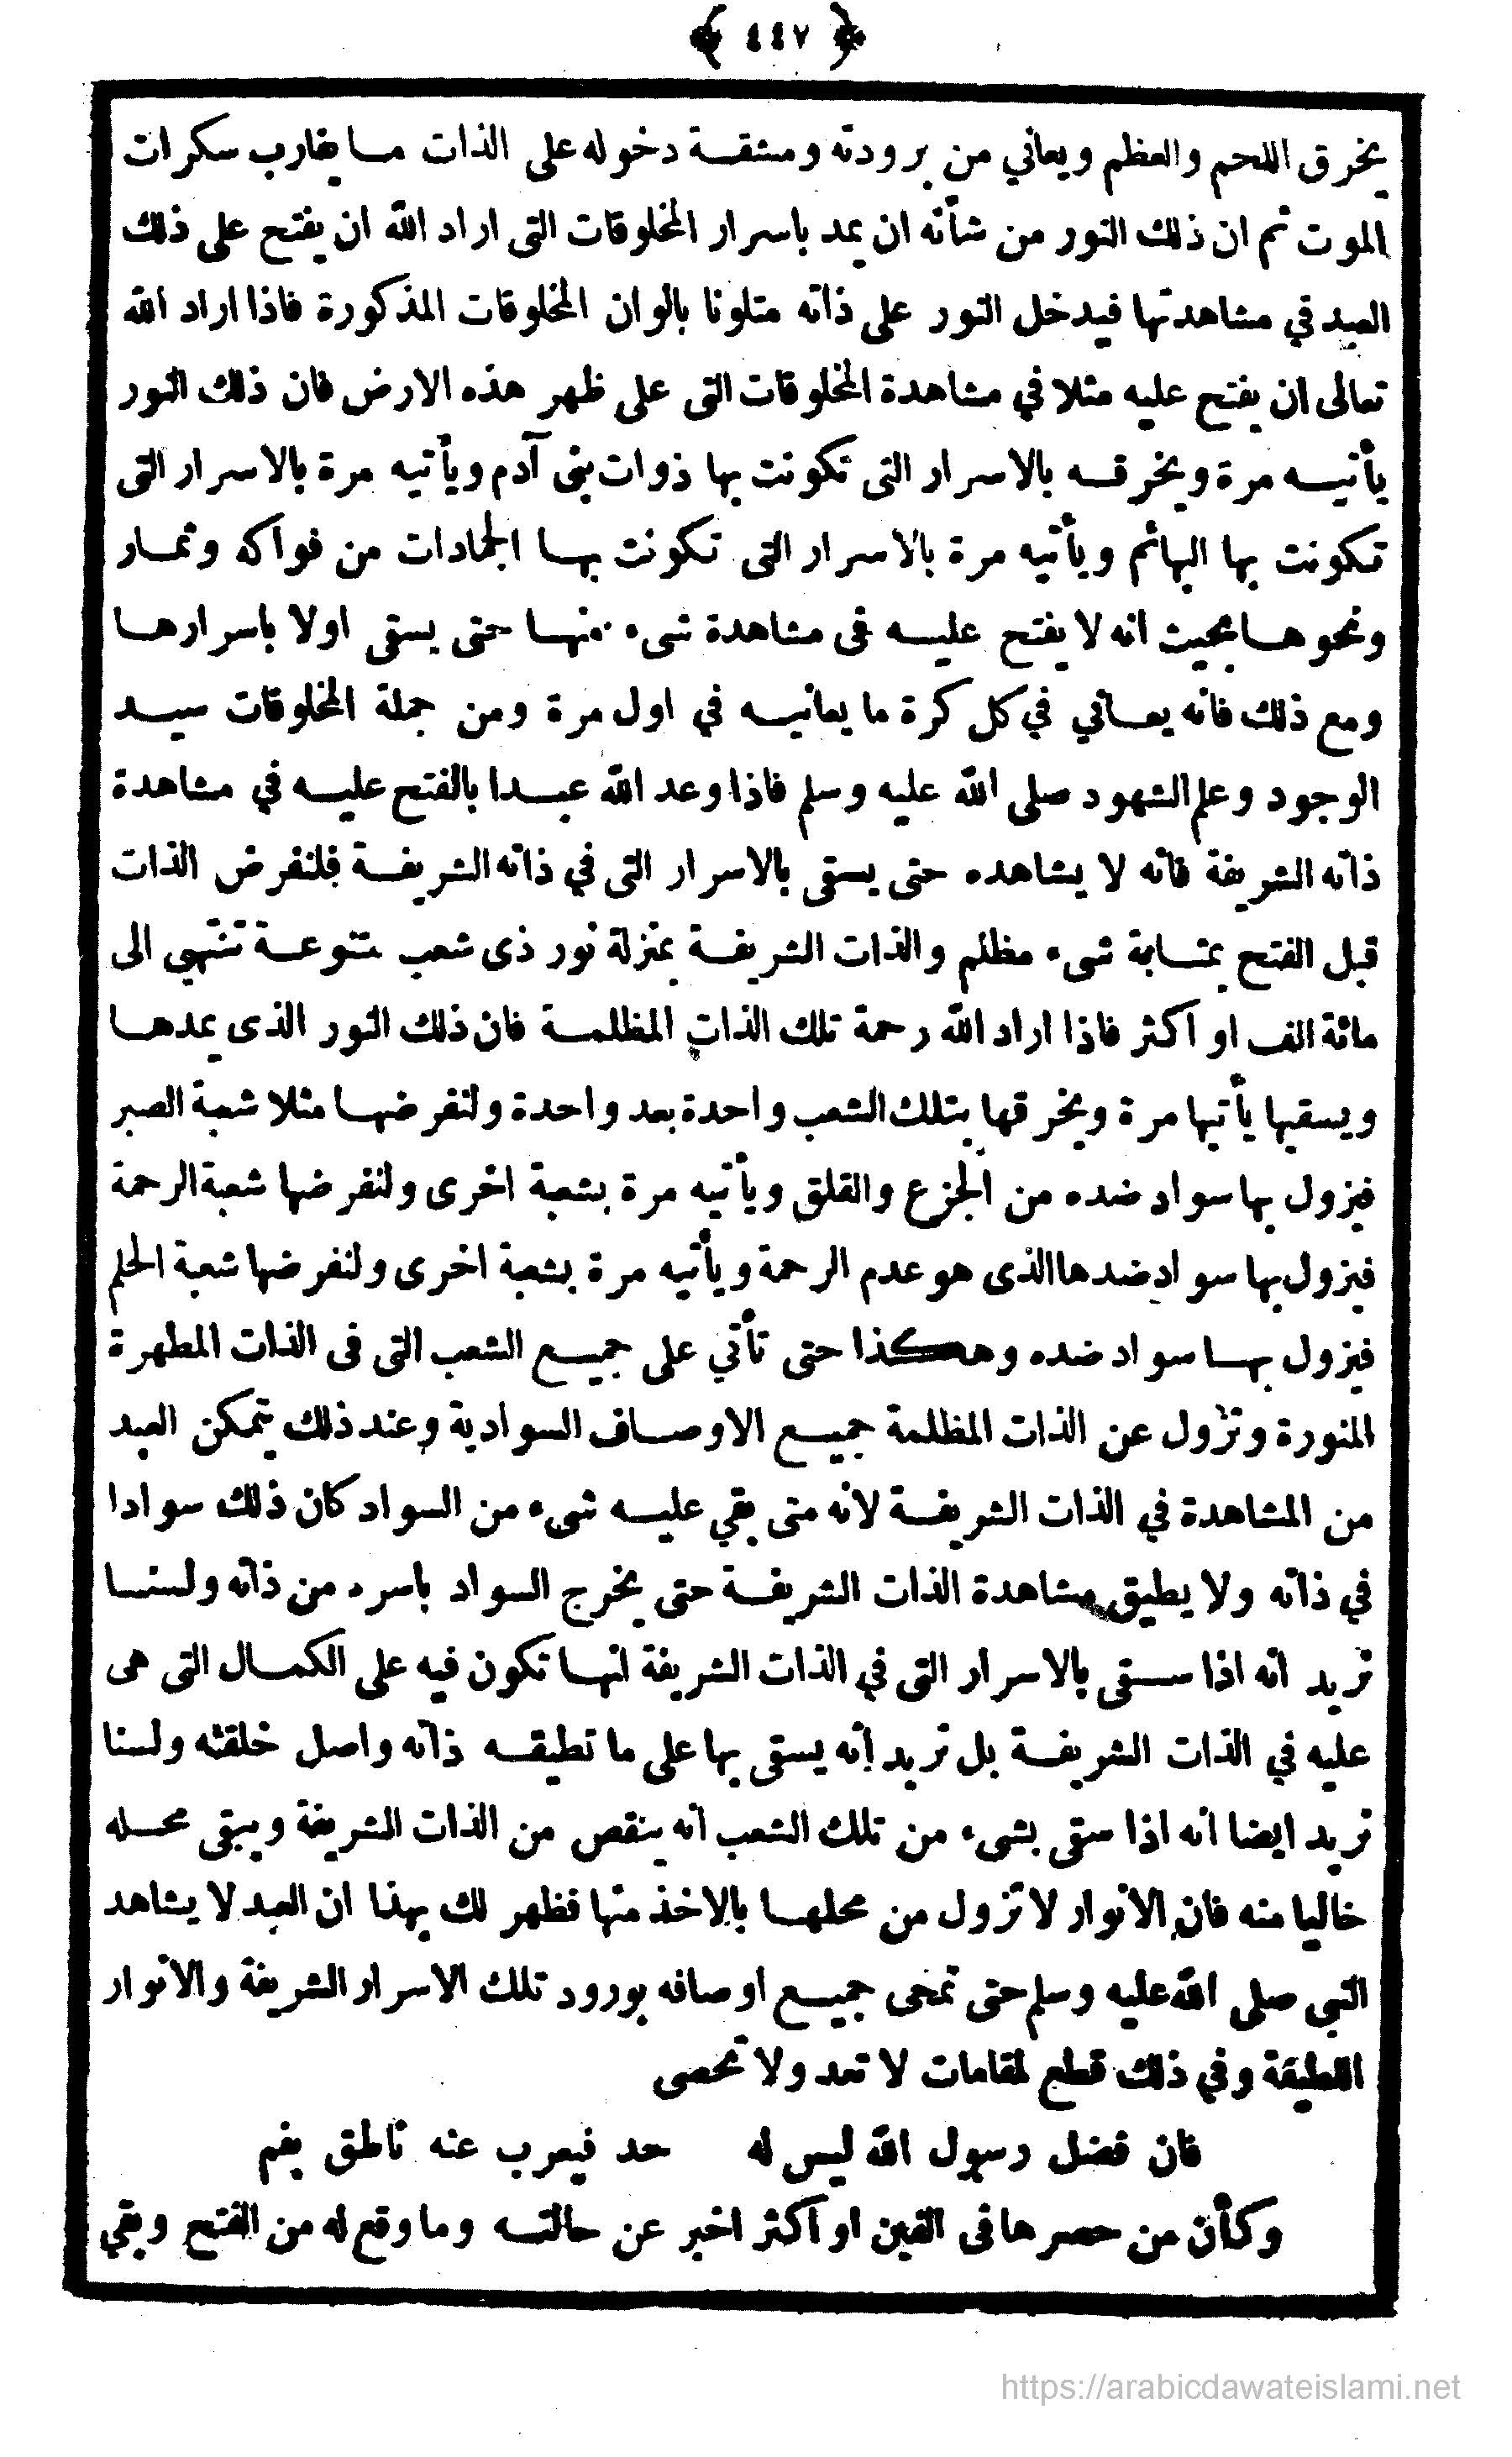 ﴿ ٤٤٧ ﴾
يخرق اللحم والعظم ويعاني من برودته ومشقة دخوله على الذات ما يقارب سكرات
الموت ثم ان ذلك النور من شأنه ان يمد باسرار المخلوقات التى اراد الله ان يفتح على ذلك
العبد في مشاهدتها فيدخل النور على ذاته متلونا بالوان المخلوقات المذكورة فاذا اراد الله
تعالى ان يفتح عليه مثلا في مشاهدة المخلوقات التى على ظهر هذه الارض فان ذلك النور
يأتيه مرة ويخرقه بالاسرار التى تكونت بها ذوات بنى آدم ويأتيه مرة بالاسرار التى
تكونت بها البهائم ويأتيه مرة بالاسرار التى تكونت بها الجمادات من فواكه وثمار
ونحوها بحيث انه لا يفتح عليه فى مشاهدة شىء منها حتى يسقى اولا باسرارها
ومع ذلك فانه يعاني في كل كرة ما يعانيه في اول مرة ومن جملة المخلوقات سيد
الوجود وعلم الشهود صلى الله عليه وسلم فاذا وعد الله عبدا بالفتح عليه في مشاهدة
ذاته الشريفة فانه لا يشاهده حتى يسقى بالاسرار التى في ذاته الشريفة فلنفرض الذات
قبل الفتح بمثابة شىء مظلم والذات الشريفة بمنزلة نور ذى شعب متنوعة تنتهي الى
مائة الف او اكثر فاذا اراد الله رحمة تلك الذات المظلمة فان ذلك النور الذى يمدها
ويسقيها يأتيها مرة ويخرقها بتلك الشعب واحدة بعد واحدة ولنفرضها مثلا شعبة الصبر
فيزول بها سواد ضده من الجزع والقلق ويأتيه مرة بشعبة اخرى ولنفرضها شعبة الرحمة
فيزول بها سواد ضدها الذى هو عدم الرحمة ويأتيه مرة بشعبة اخرى ولنفرضها شعبة الحلم
فيزول بها سواد ضده وهكذا حتى تأتي على جميع الشعب التى فى الذات المطهرة
المنورة وتزول عن الذات المظلمة جميع الاوصاف السوادية وعند ذلك يتمكن العبد
من المشاهدة في الذات الشريفة لانه متى بقي عليه شىء من السواد كان ذلك سوادا
في ذاته ولا يطيق مشاهدة الذات الشريفة حتى يخرج السواد باسره من ذاته ولسنا
نريد انه اذا سقى بالاسرار التى في الذات الشريفة انها تكون فيه على الكمال التى هى
عليه في الذات الشريفة بل نريد انه يسقى بها على ما تطيقه ذاته واصل خلقته ولسنا
نريد ايضا انه اذا سقى بشىء من تلك الشعب انه ينقص من الذات الشريفة ويبقى محله
خاليا منه فان الانوار لا تزول من محلها بالاخذ منها فظهر لك بهذا ان العبد لا يشاهد
النبى صلى الله عليه وسلم حتى تمحى جميع اوصافه بورود تلك الاسرار الشريفة والانوار
اللطيفة وفي ذلك قطع لمقامات لا تعد ولا تحصى
فان فضل رسول الله ليس له حد فيعرب عنه ناطق بفم
وكأن من حصرها فى الفين او اكثر اخبر عن حالته وما وقع له من الفتح وبقي
https://arabicdawateislami.net